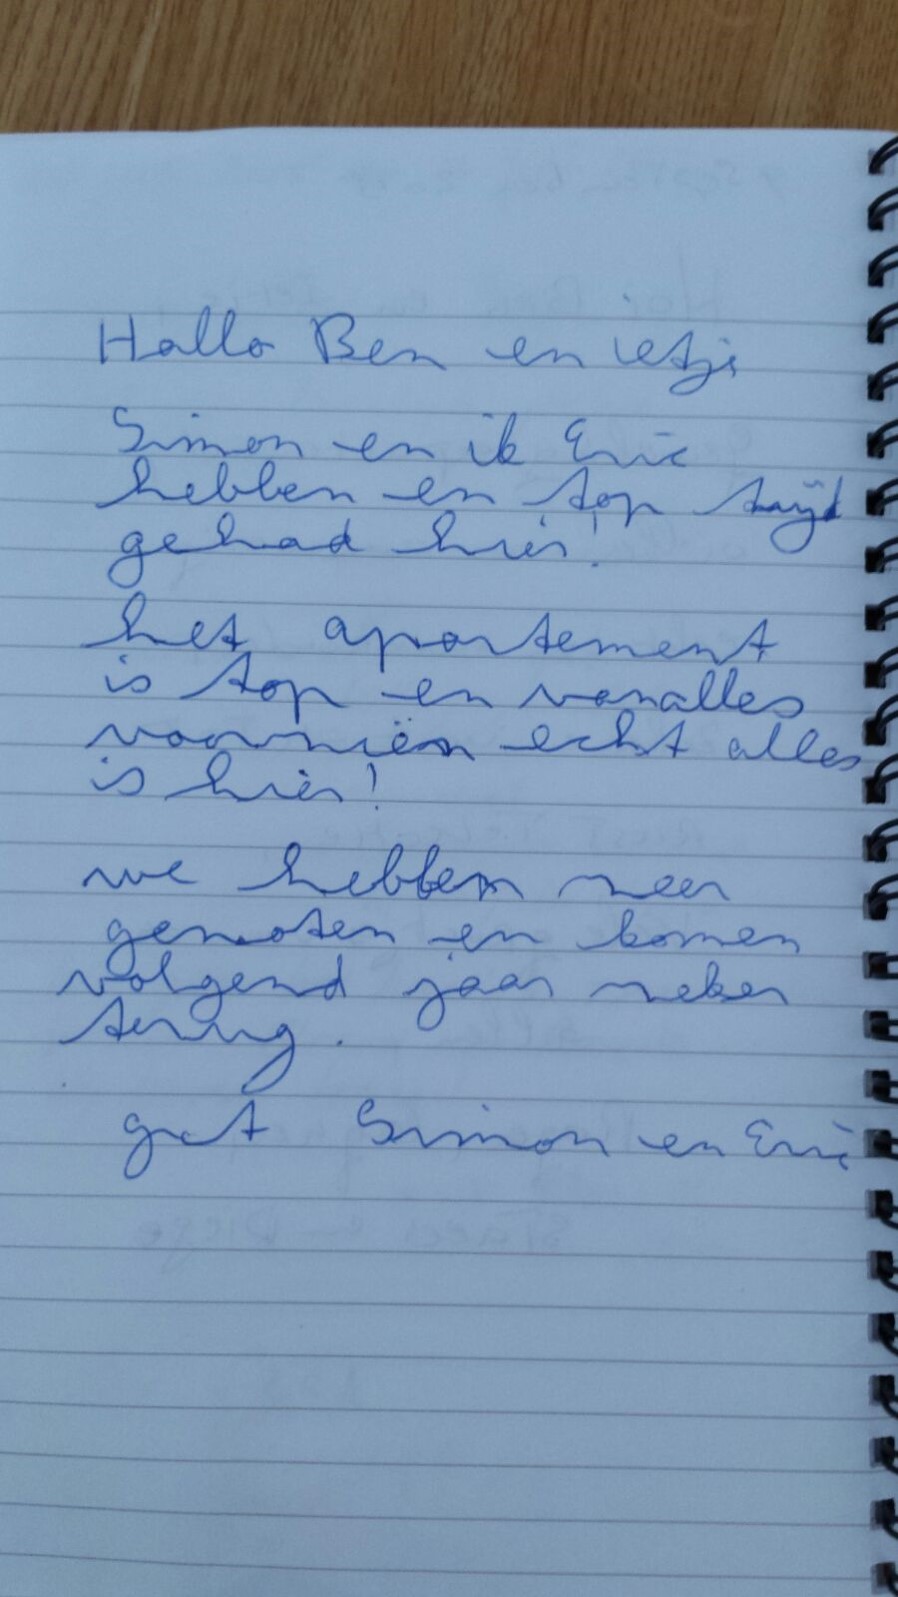 Hallo Ben en Ietje
Simon en ik Eric
hebben en top tijd
gehad hier!
het apartement
is top en vanalles
voorniën echt alles
is hier!
we hebben zeer
genoten en komen
volgend jaar zeker
terug.
get Simon en Eric